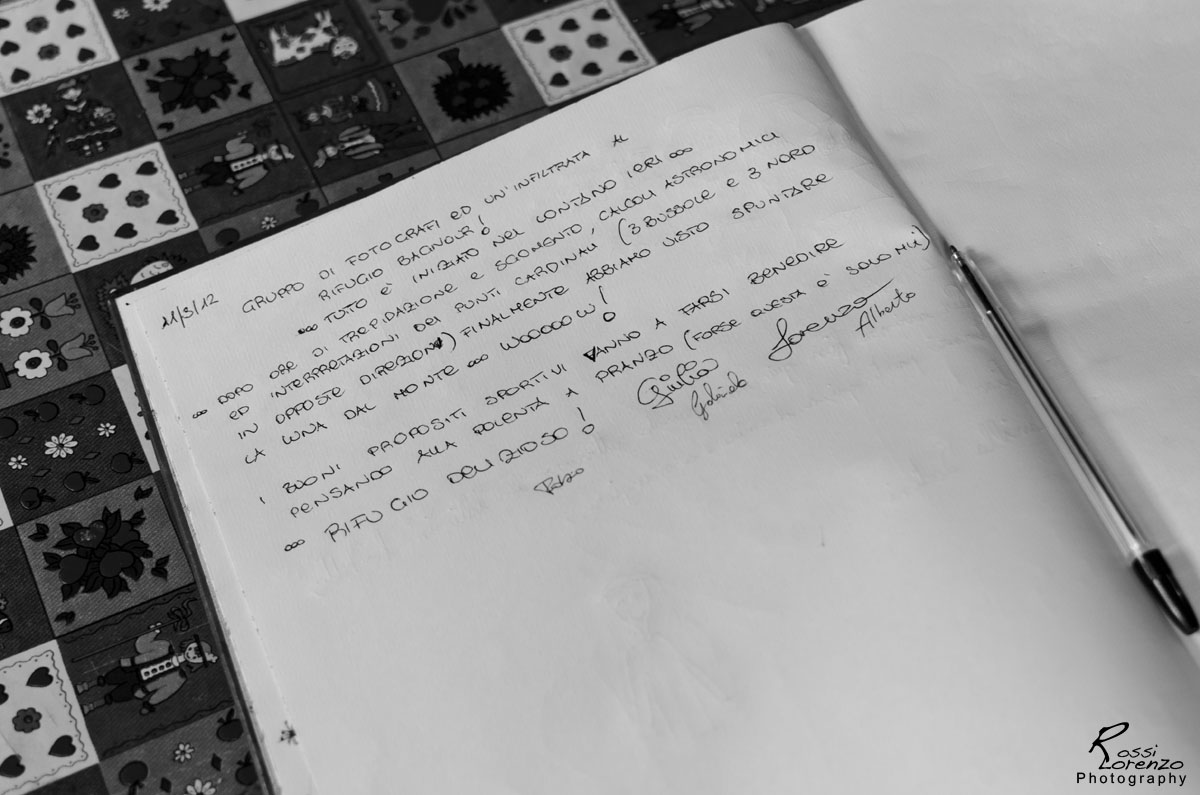 11/3/12 GRUPPO DI FOTOGRAFI ED UN'INFILTRATA AL
RIFUGIO BAGINOUR!
... TUTTO È INIZIATO NEL LONTANO IERI ...
... DOPO ORE DI TREPIDAZIONE E SGOMENTO, CALCOLI ASTRONOMICI
ED INTERPRETAZIONI DEI PUNTI CARDINALI (3 BUSSOLE E 3 NORD
IN OPPOSTE DIREZIONI) FINALMENTE ABBIAMO VISTO SPUNTARE
LA LUNA DAL MONTE ... WOOOOOW!
I BUONI PROPOSITI SPORTIVI VANNO A FARSI BENEDIRE
PENSANDO ALLA POLENTA A PRANZO (FORSE QUESTA È SOLO MIA)
... RIFUGIO DELIZIOSO!
Giulia
Lorenzo
Alberto
Gabriele
Rossi
Lorenzo
Photography